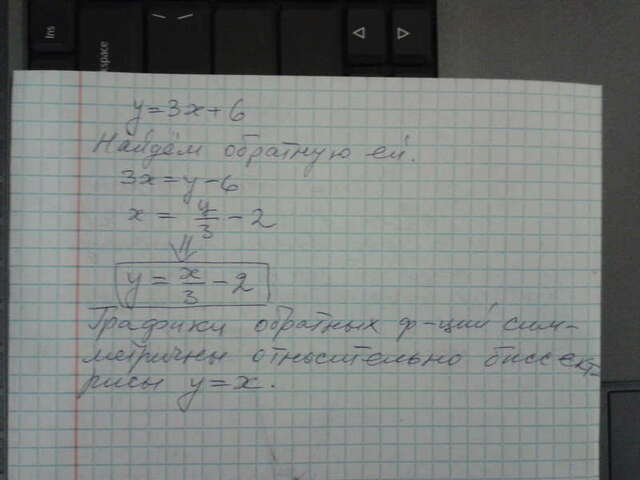 y=3x+6
Найдём обратную ей.
3x=y-6
x = y/3 - 2
⇓
y = x/3 - 2
Графики обратных ф-ций сим-
метричны относительно биссек-
рисы y=x.
Ins